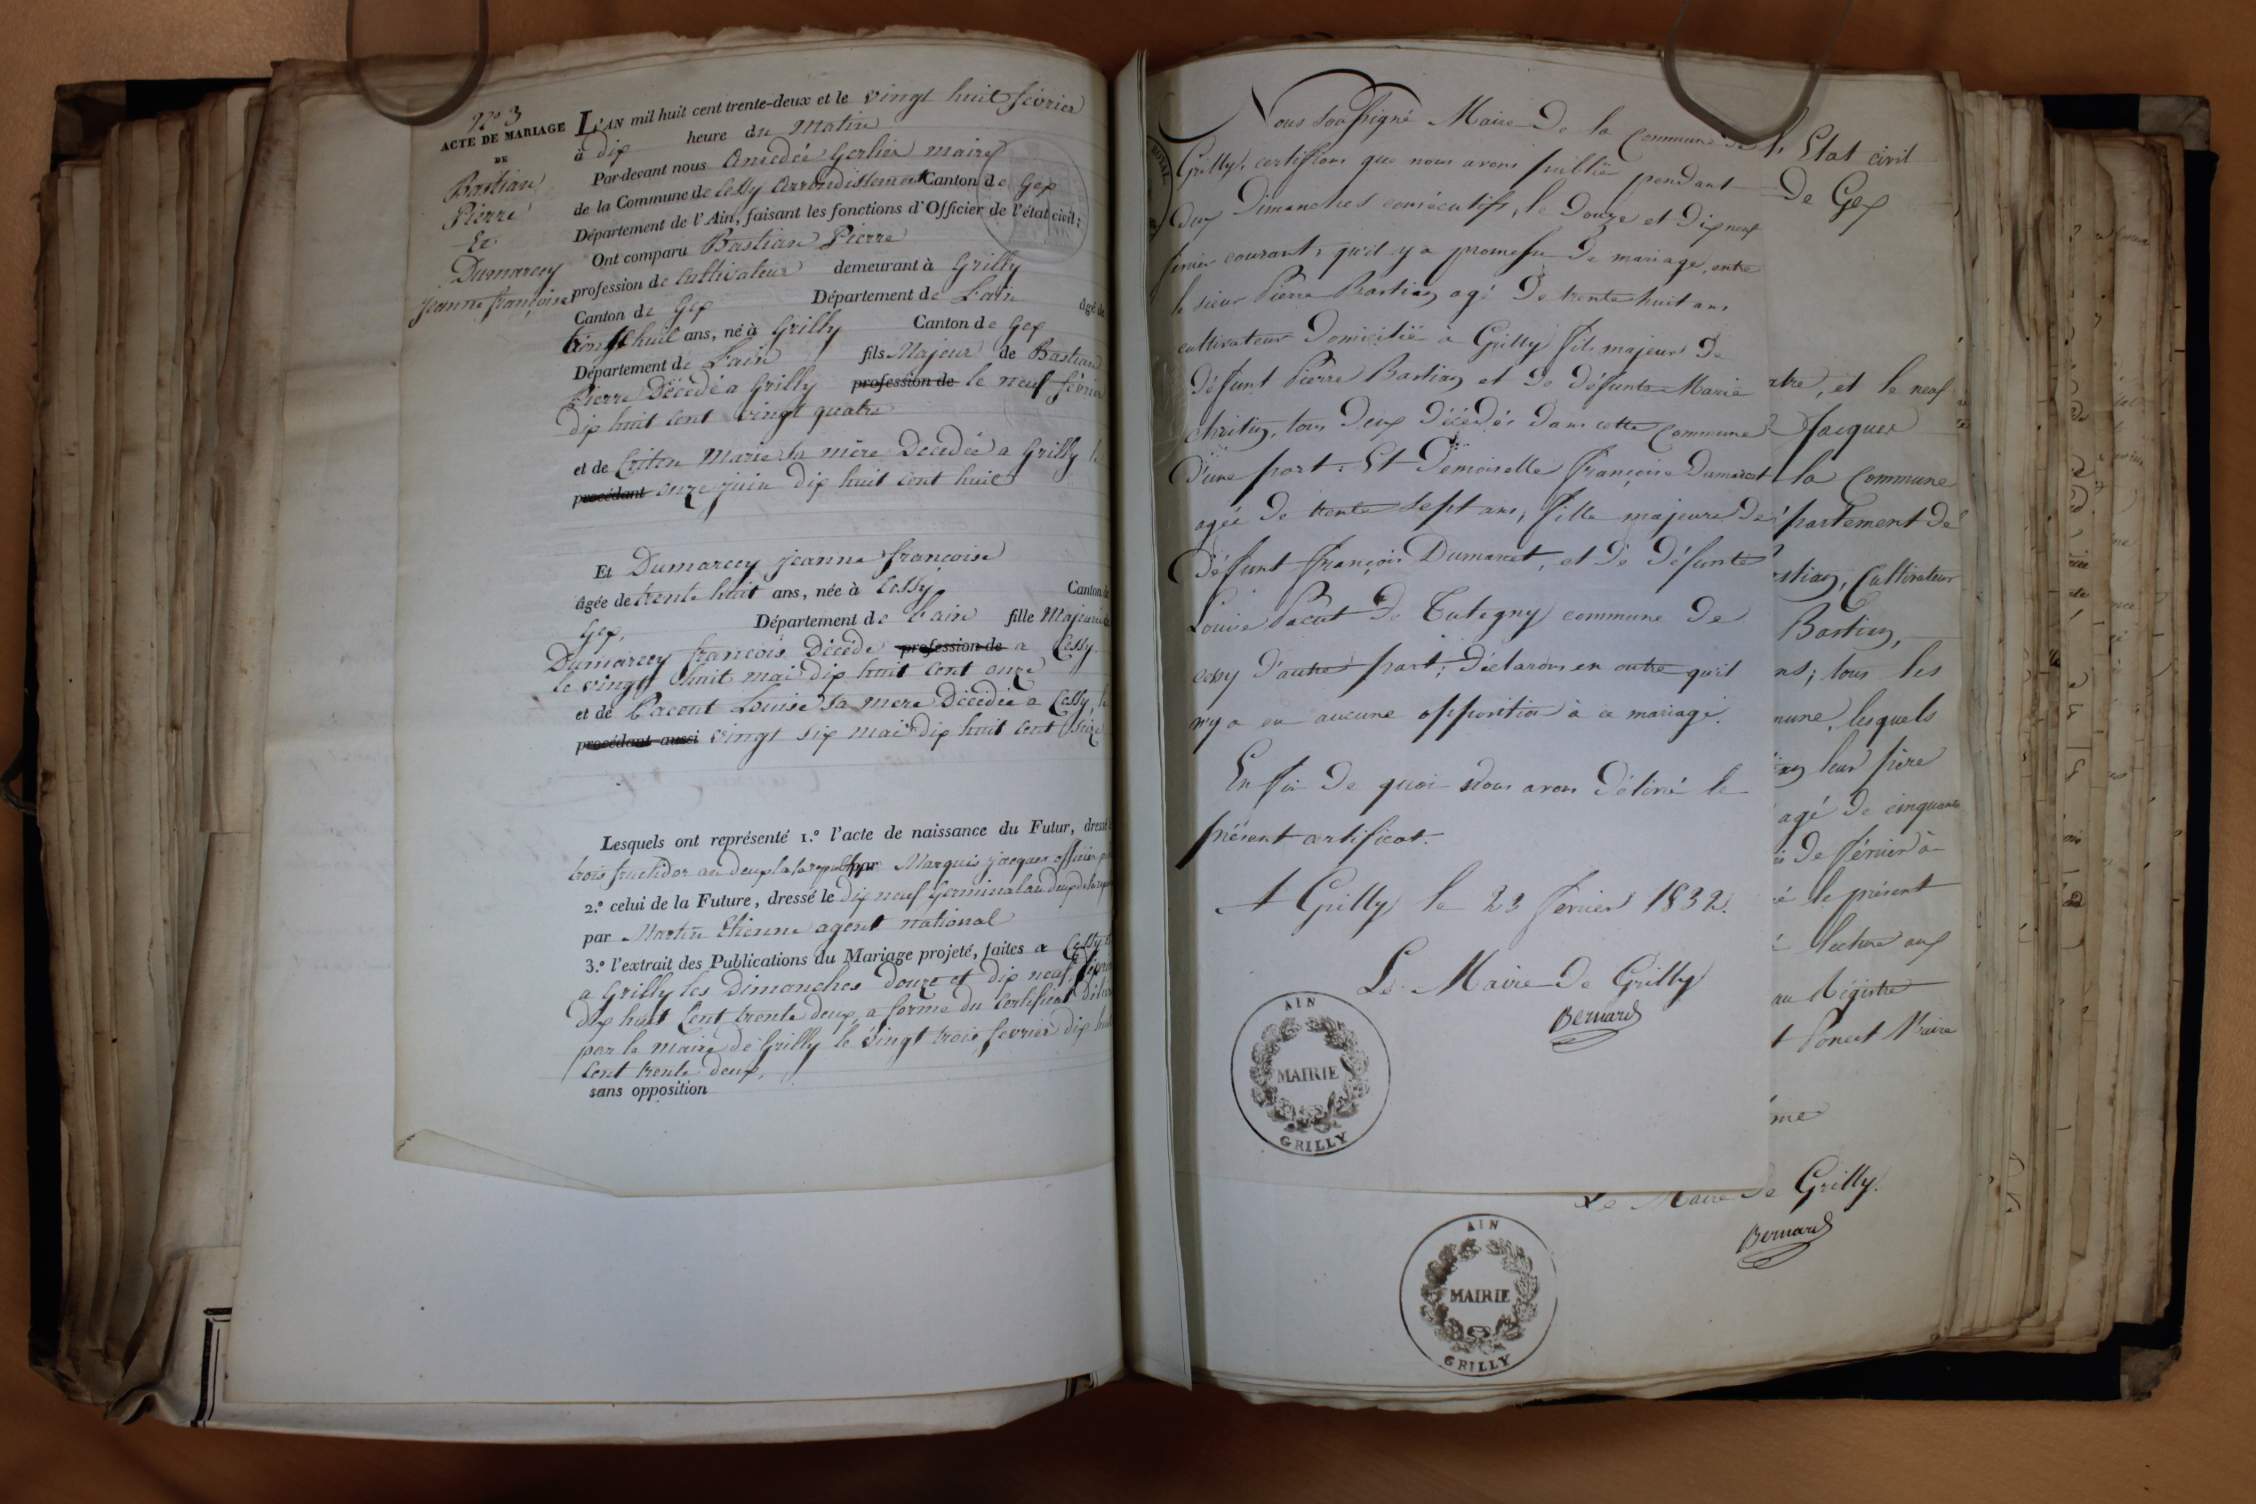 N.o 3
ACTE DE MARIAGE
DE
Bastian
Pierre
Et
Dumarcey
jeanne françoise
L'AN mil huit cent trente-deux et le vingt huit février
à dix heure du Matin
Par-devant nous amedée Gerlier maire
de la Commune de Cessy arrondissement Canton de Gex
Département de l'Ain, faisant les fonctions d'Officier de l'état civil;
Ont comparu Bastian Pierre
profession de Cultivateur demeurant à Grilly
Canton de Gex Département de L'ain âgé de
trente huit ans, né à Grilly Canton de Gex
Département de L'ain fils Majeur de Bastian
Pierre Décédé a Grilly profession de le neuf février
dix huit cent vingt quatre
et de Critin Marie sa mère Décédée a Grilly le
procédant onze juin dix huit cent huit
Et Dumarcey jeanne francoise
âgée de trente huit ans, née à Cessy Canton de
Gex, Département de L'ain fille Majeure de
Dumarcey francois Décédé profession de a Cessy
le vingt huit mai dix huit cent onze
et de Pacout Louise sa mere Décédée a Cessy, le
procédant aussi vingt six mai dix huit cent seize
Lesquels ont représenté 1.o l'acte de naissance du Futur, dressé
trois fructidor an deux la rep par Marquis jacques officier
2.o celui de la Future, dressé le dix neuf germinal an deux de la
par Martin Etienne agent national
3.o l'extrait des Publications du Mariage projeté, faites a Cessy et
a Grilly les Dimanches douze et dix neuf
dix huit Cent trente deux, a forme du Certificat
par le maire de Grilly le vingt trois fevrier dix huit
Cent trente deux,
sans opposition
Nous Soussigné Maire De la Commune de
Grilly, certifions que nous avons publiée pendant
deux Dimanches consécutifs, le Douze et Dix neuf
fevrier courant, qu'il y a promesse De mariage, entre
le sieur Pierre Bastian agé De trente huit ans
cultivateur Domicilié à Grilly fils majeur De
Défunt Pierre Bastian et De Défunte Marie
Chritin, tous Deux Décédés dans cette Commune
D'une part. Et Demoiselle françoise Dumarcet
agée De trente sept ans, fille majeure De
Défunt françois Dumarcet, et De Défunte
Louise Pacut De Tutegny commune De
cessy D'autre part; Déclarons en outre qu'il
n'y a eu aucune opposition à ce mariage.
En foi De quoi Nous avons Délivré le
présent certificat.
A Grilly le 23 fevrier 1832.
Le Maire De Grilly
Bernard
AIN
MAIRIE
GRILLY
Etat civil
De Gex
et le neuf
Jacques
la Commune
partement De
Cultivateur
Bastian,
tous les
lesquels
leur père
agé De cinquante
De février à
le présent
lecture aux
au Régistre
Poncet Maire
me
Le Maire De Grilly.
Bernard
AIN
MAIRIE
GRILLY